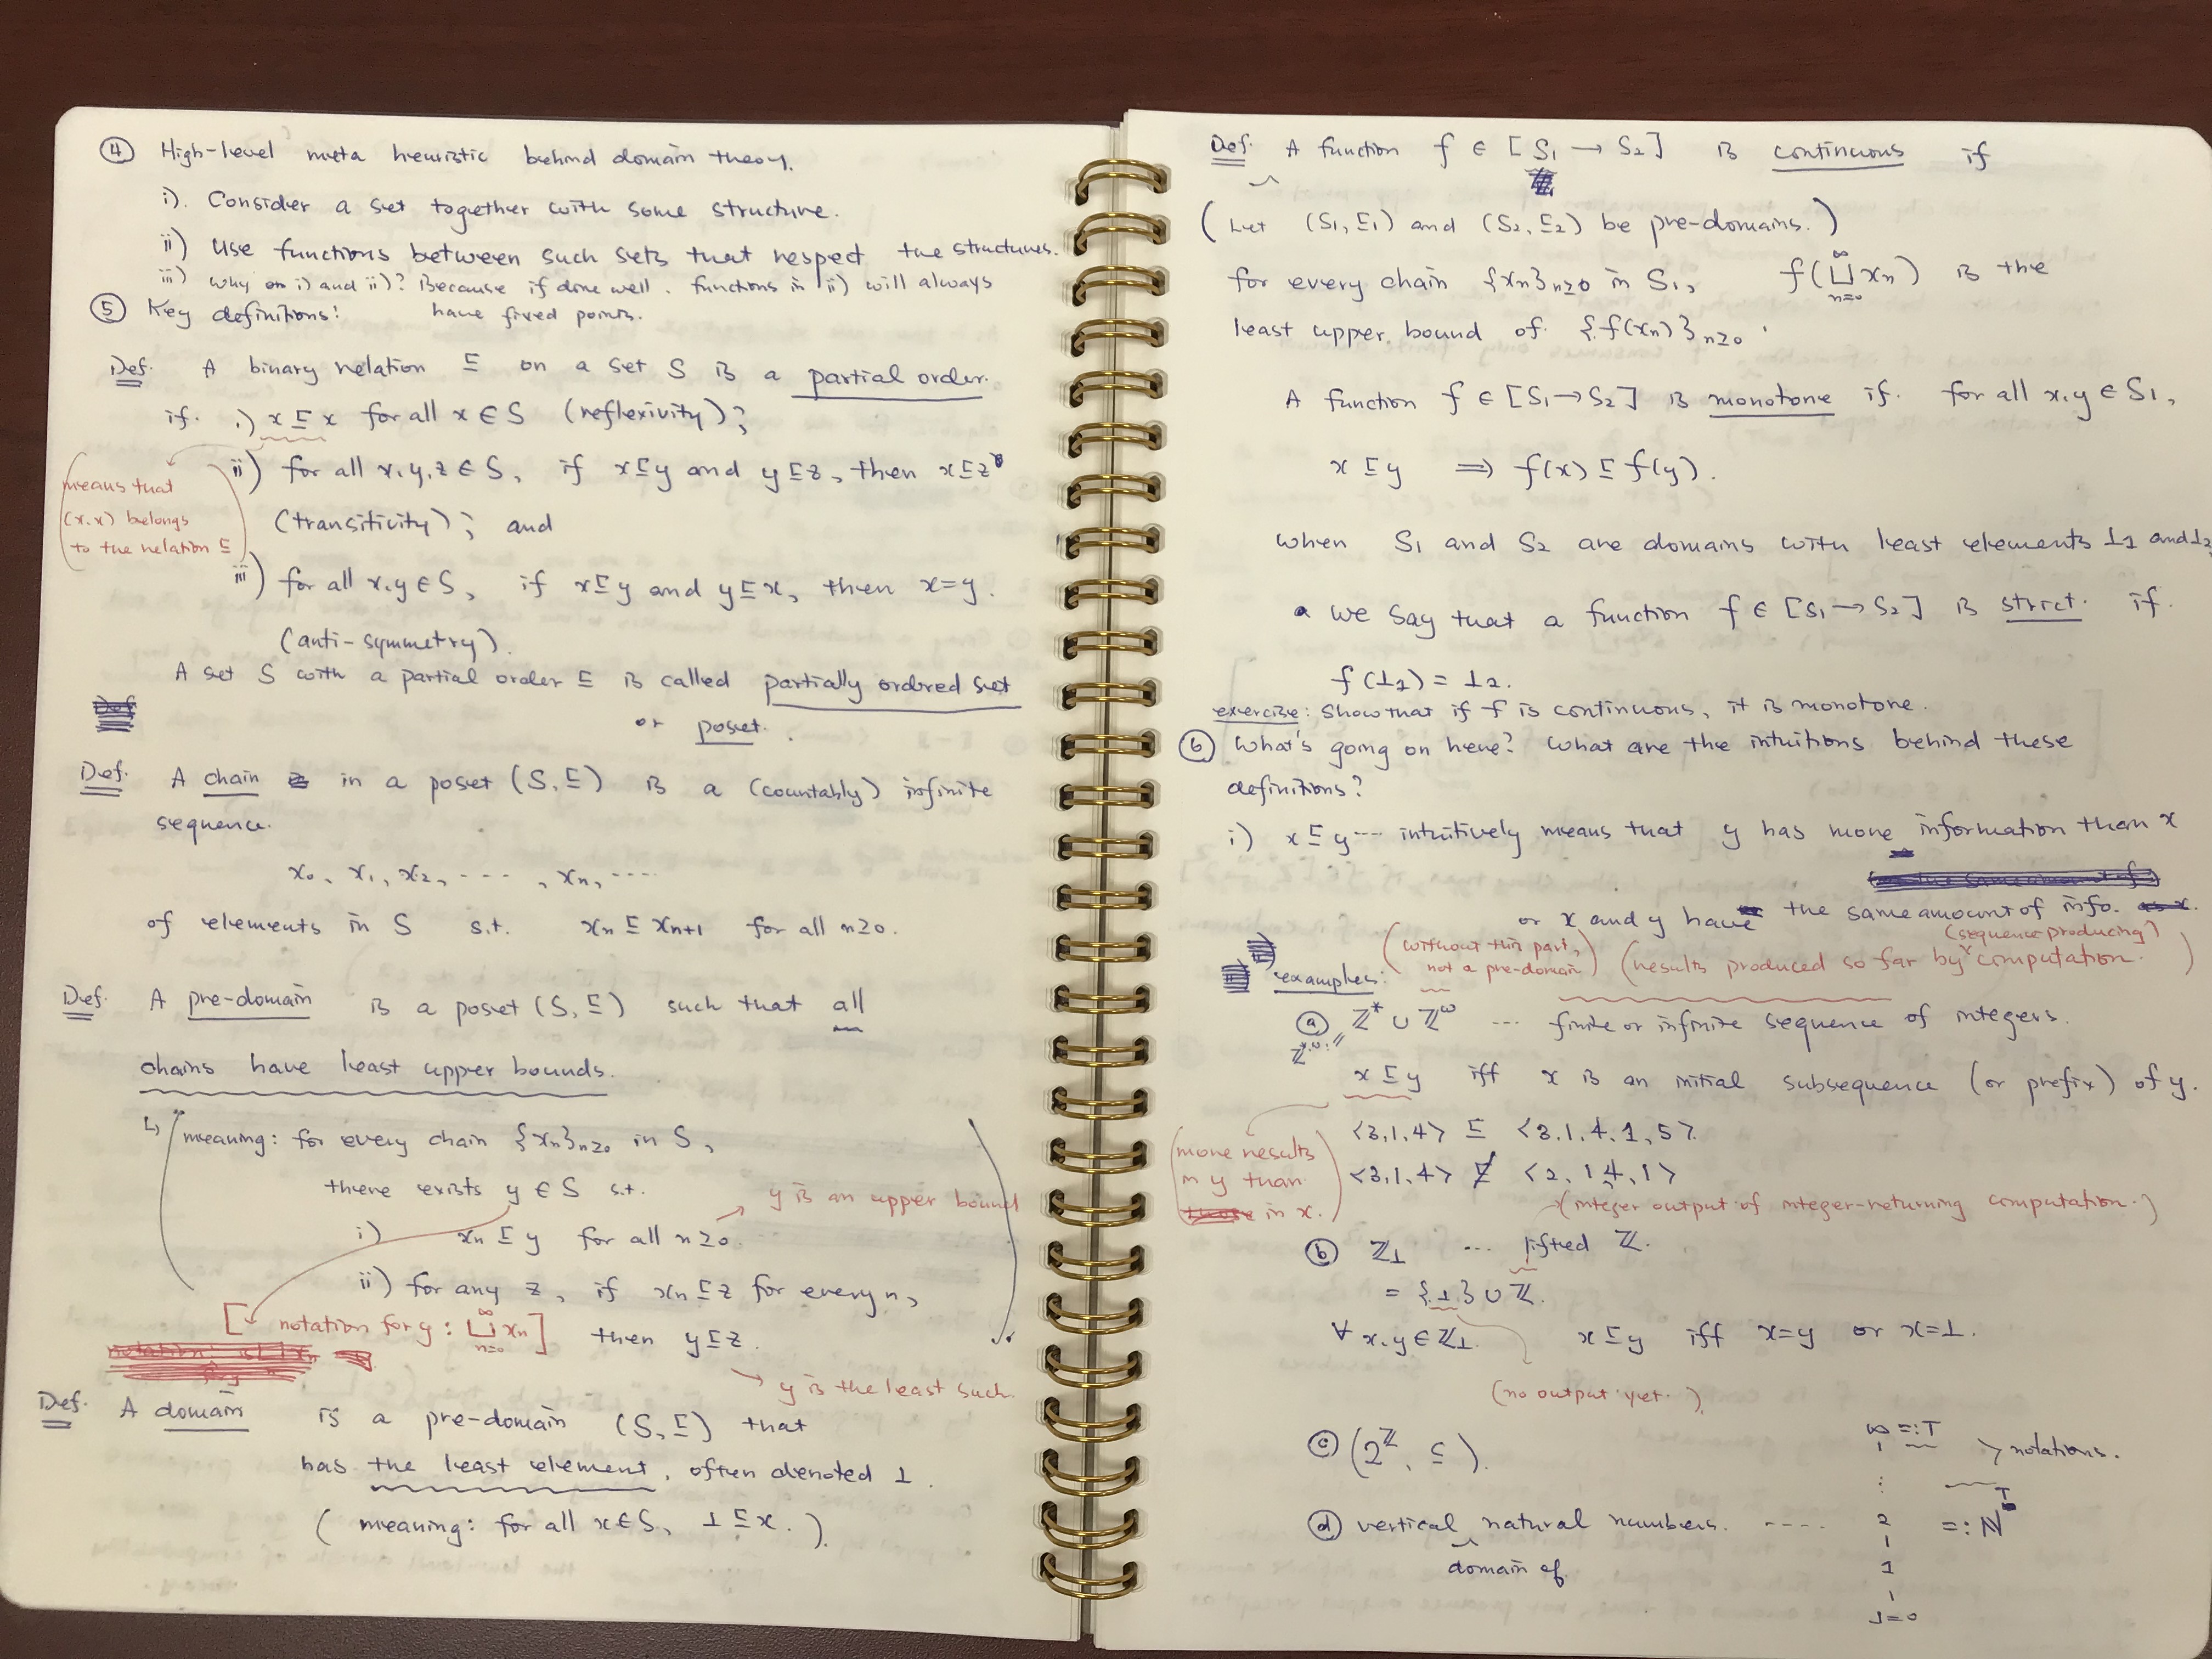 ④ High-level meta heuristic behind domain theory.
i). Consider a set together with some structure.
ii) Use functions between such sets that respect the structures.
iii) why i) and ii)? Because if done well, functions in ii) will always
have fixed points.
⑤ Key definitions:
Def. A binary relation ⊑ on a set S is a partial order.
if. i) x ⊑ x for all x ∈ S (reflexivity);
ii) for all x,y,z ∈ S, if x⊑y and y⊑z, then x⊑z
(means that
(x,x) belongs
to the relation ⊑)
(transitivity); and
iii) for all x,y ∈ S, if x⊑y and y⊑x, then x=y.
(anti-symmetry).
A set S with a partial order ⊑ is called partially ordered set
or poset.
Def. A chain in a poset (S,⊑) is a (countably) infinite
sequence.
x₀, x₁, x₂, ----, xₙ, ----
of elements in S s.t. xₙ ⊑ xₙ₊₁ for all n≥0.
Def. A pre-domain is a poset (S,⊑) such that all
chains have least upper bounds.
↳ (meaning: for every chain {xₙ}ₙ≥₀ in S,
there exists y ∈ S s.t.
y is an upper bound
i) xₙ ⊑ y for all n≥0.
ii) for any z, if xₙ ⊑ z for every n,
then y⊑z.
[notation for y: ⊔ₙ₌₀^∞ xₙ]
y is the least such.
Def. A domain is a pre-domain (S,⊑) that
has the least element, often denoted ⊥.
(meaning: for all x∈S, ⊥⊑x.).
Def. A function f ∈ [S₁ → S₂] is continuous if
(Let (S₁,⊑₁) and (S₂,⊑₂) be pre-domains.)
for every chain {xₙ}ₙ≥₀ in S₁, f(⊔ₙ₌₀^∞ xₙ) is the
least upper bound of {f(xₙ)}ₙ≥₀.
A function f ∈ [S₁→S₂] is monotone if. for all x,y ∈ S₁,
x ⊑ y ⟹ f(x) ⊑ f(y).
when S₁ and S₂ are domains with least elements ⊥₁ and ⊥₂
we say that a function f ∈ [S₁→S₂] is strict. if.
f(⊥₁) = ⊥₂.
exercise: Show that if f is continuous, it is monotone.
⑥ What's going on here? What are the intuitions behind these
definitions?
i) x ⊑ y --- intuitively means that y has more information than x
or x and y have the same amount of info.
(sequence producing)
(without this part,
not a pre-domain)
(results produced so far by computation.)
examples:
ⓐ ℤ* ∪ ℤ^ω --- finite or infinite sequence of integers.
x ⊑ y iff x is an initial subsequence (or prefix) of y.
<3,1,4> ⊑ <3,1,4,1,5>.
<3,1,4> ⋢ <2,1,4,1>
(more results
in y than
in x.)
(integer output of integer-returning computation.)
ⓑ ℤ⊥ --- lifted ℤ.
= {⊥} ∪ ℤ.
∀ x,y ∈ ℤ⊥. x ⊑ y iff x=y or x=⊥.
(no output yet.)
ⓒ (2^ℤ, ⊆).
∞ =: ⊤
> notations.
⋮
ⓓ vertical natural numbers. ---- 2 =: ℕ^⊤
domain of
1
⊥=0